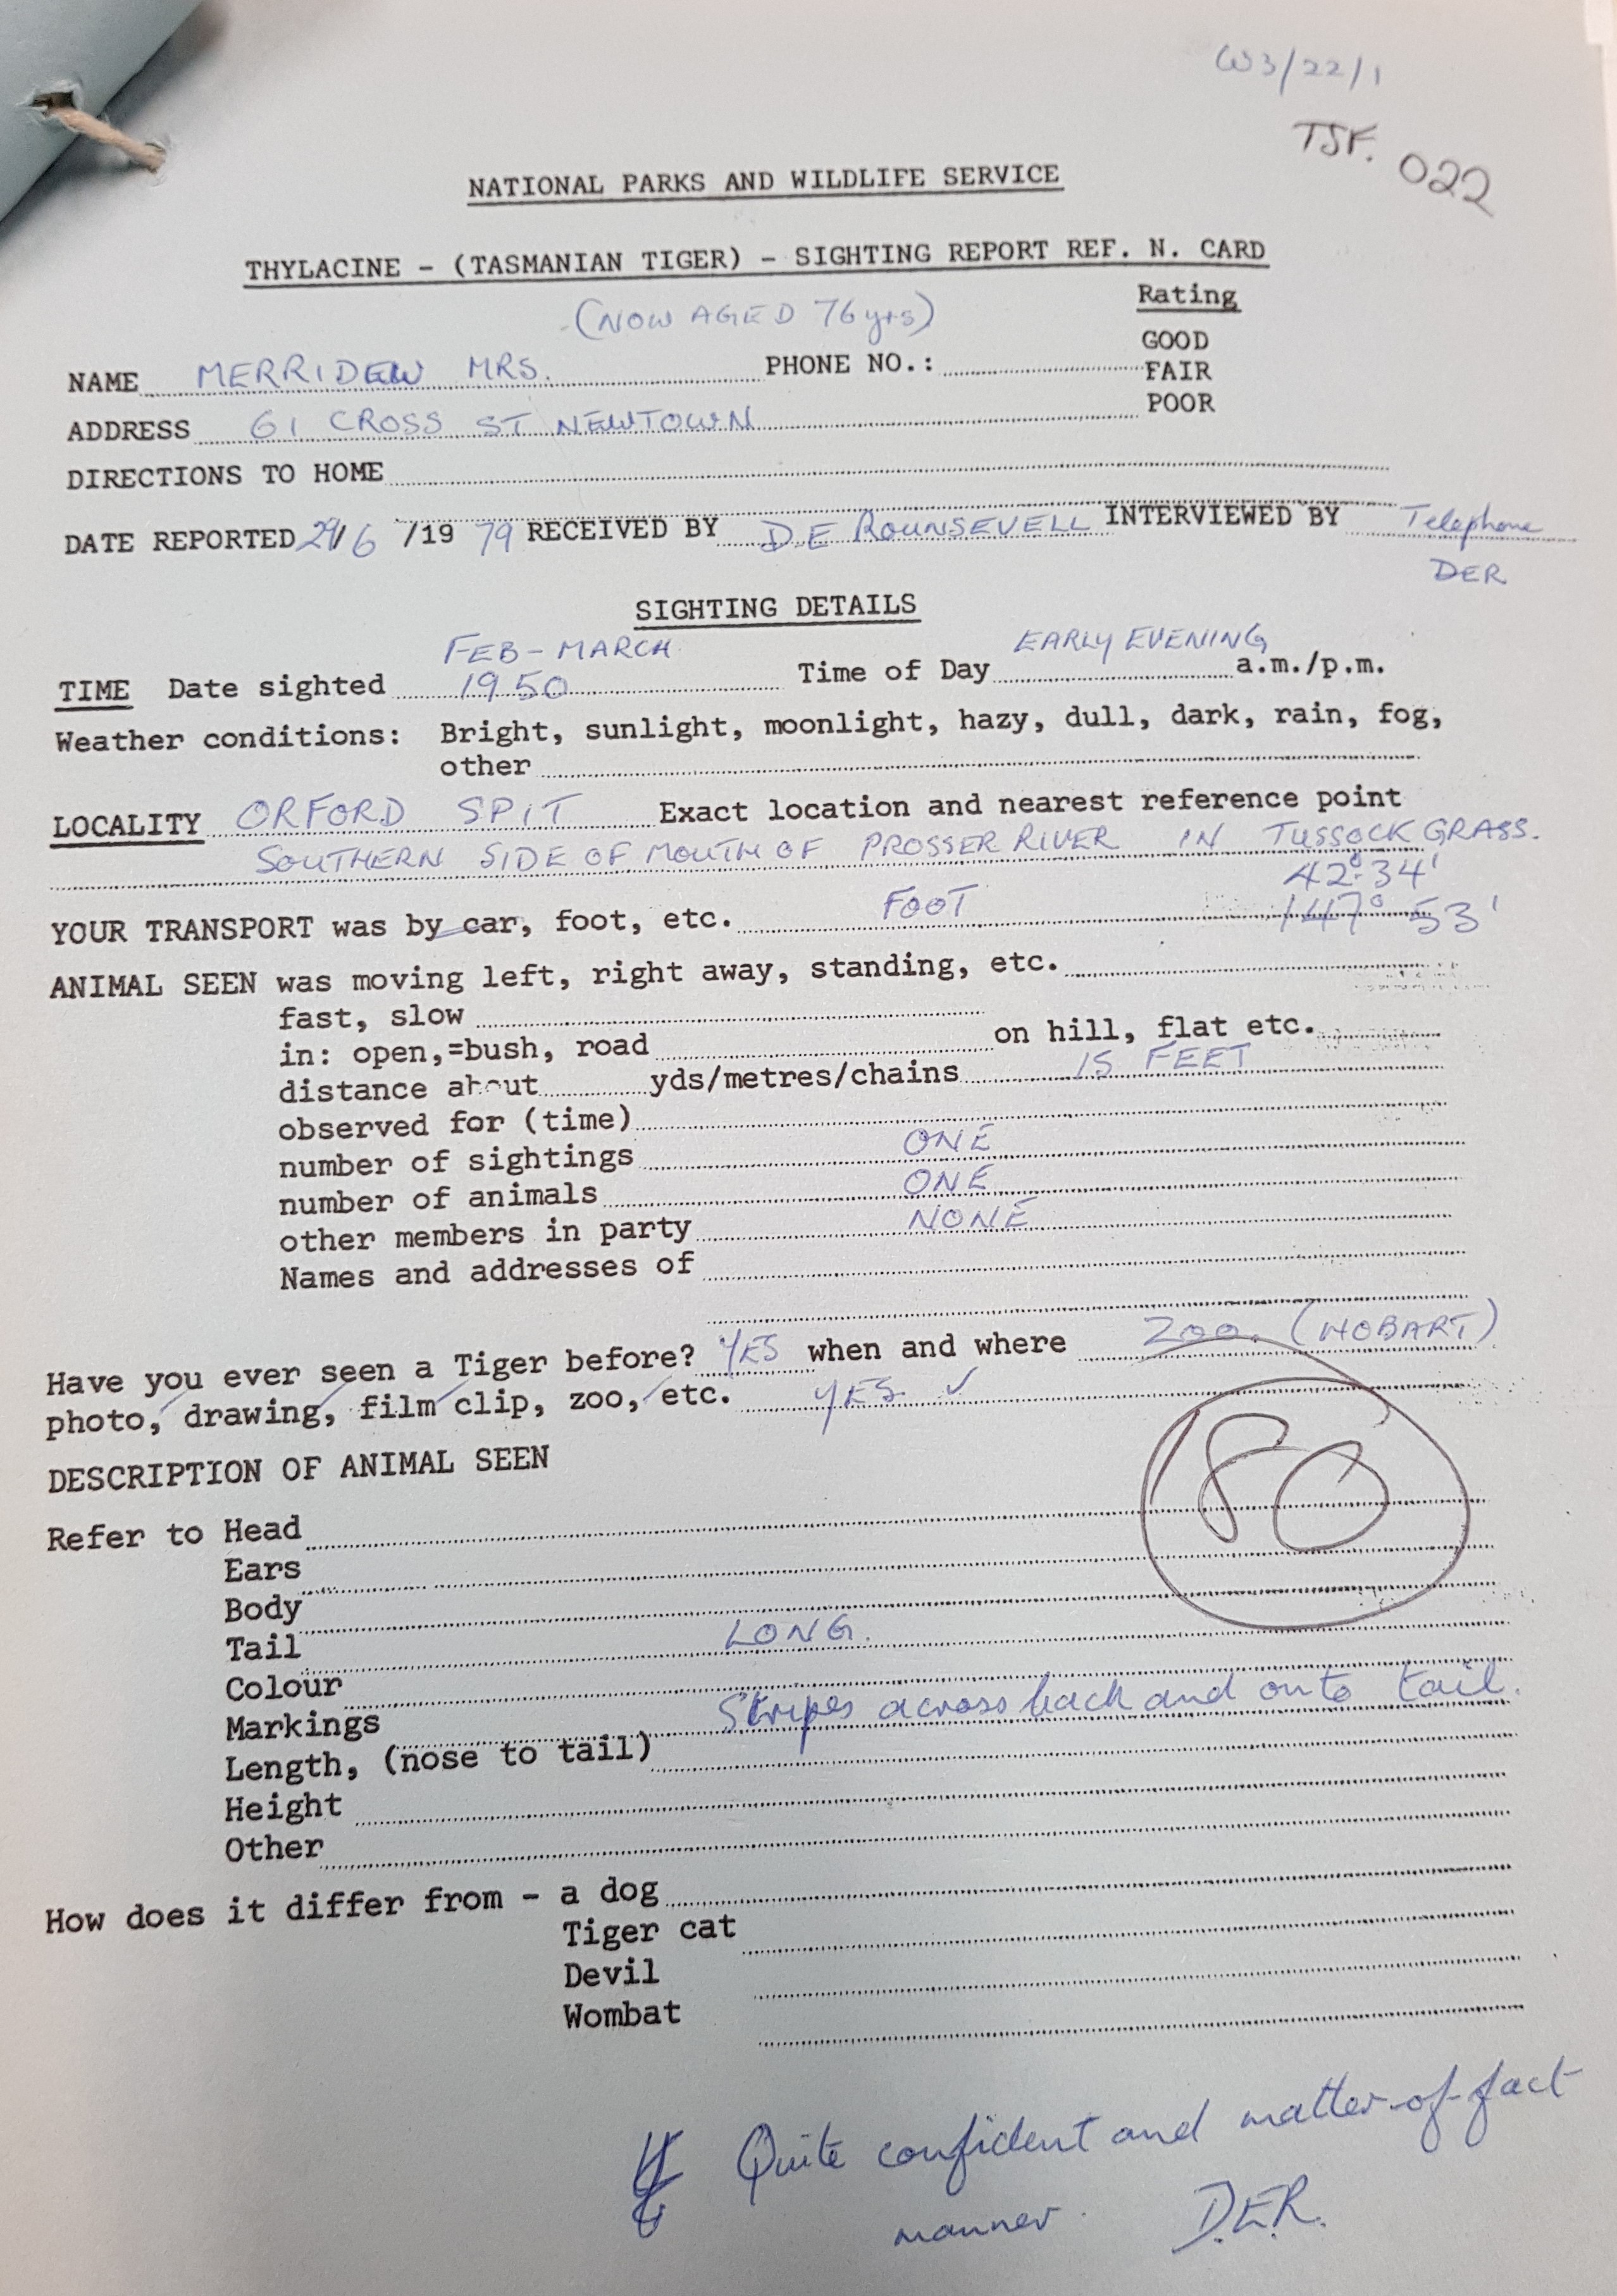 W3/22/1
TSF. 022
NATIONAL PARKS AND WILDLIFE SERVICE
THYLACINE - (TASMANIAN TIGER) - SIGHTING REPORT REF. N. CARD
(NOW AGED 76 yrs)
Rating
GOOD
NAME MERRIDEW MRS. PHONE NO.: FAIR
ADDRESS 61 CROSS ST NEWTOWN POOR
DIRECTIONS TO HOME
DATE REPORTED 29/6/1979 RECEIVED BY D.E ROUNSEVELL INTERVIEWED BY Telephone
DER
SIGHTING DETAILS
FEB-MARCH EARLY EVENING
TIME Date sighted 1950 Time of Day a.m./p.m.
Weather conditions: Bright, sunlight, moonlight, hazy, dull, dark, rain, fog,
other
LOCALITY ORFORD SPIT Exact location and nearest reference point
SOUTHERN SIDE OF MOUTH OF PROSSER RIVER IN TUSSOCK GRASS.
42°34'
YOUR TRANSPORT was by car, foot, etc. FOOT 147° 53'
ANIMAL SEEN was moving left, right away, standing, etc.
fast, slow
in: open,=bush, road on hill, flat etc.
distance about yds/metres/chains 15 FEET
observed for (time)
number of sightings ONE
number of animals ONE
other members in party NONE
Names and addresses of
Have you ever seen a Tiger before? YES when and where Zoo. (HOBART)
photo, drawing, film clip, zoo, etc. YES. ✓
DESCRIPTION OF ANIMAL SEEN
80
Refer to Head
Ears
Body
Tail LONG.
Colour
Markings Stripes across back and onto tail.
Length, (nose to tail)
Height
Other
How does it differ from - a dog
Tiger cat
Devil
Wombat
Quite confident and matter-of-fact
manner. D.E.R.